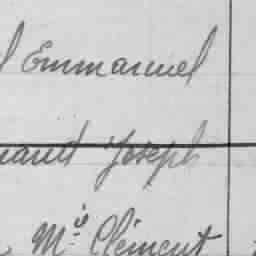 Emmanuel
Joseph
Mie Clément